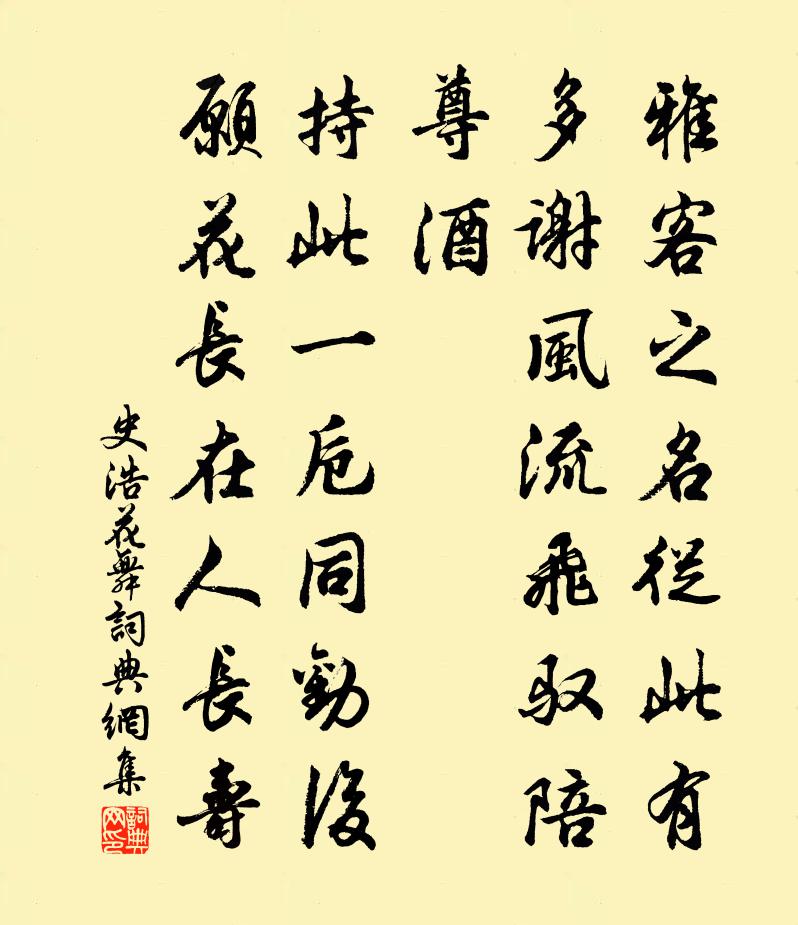 雅客之名從此有
多謝風流飛馭陪
尊酒
持此一卮同勸後
願花長在人長壽
史浩花舞詞典網集
詞典网印